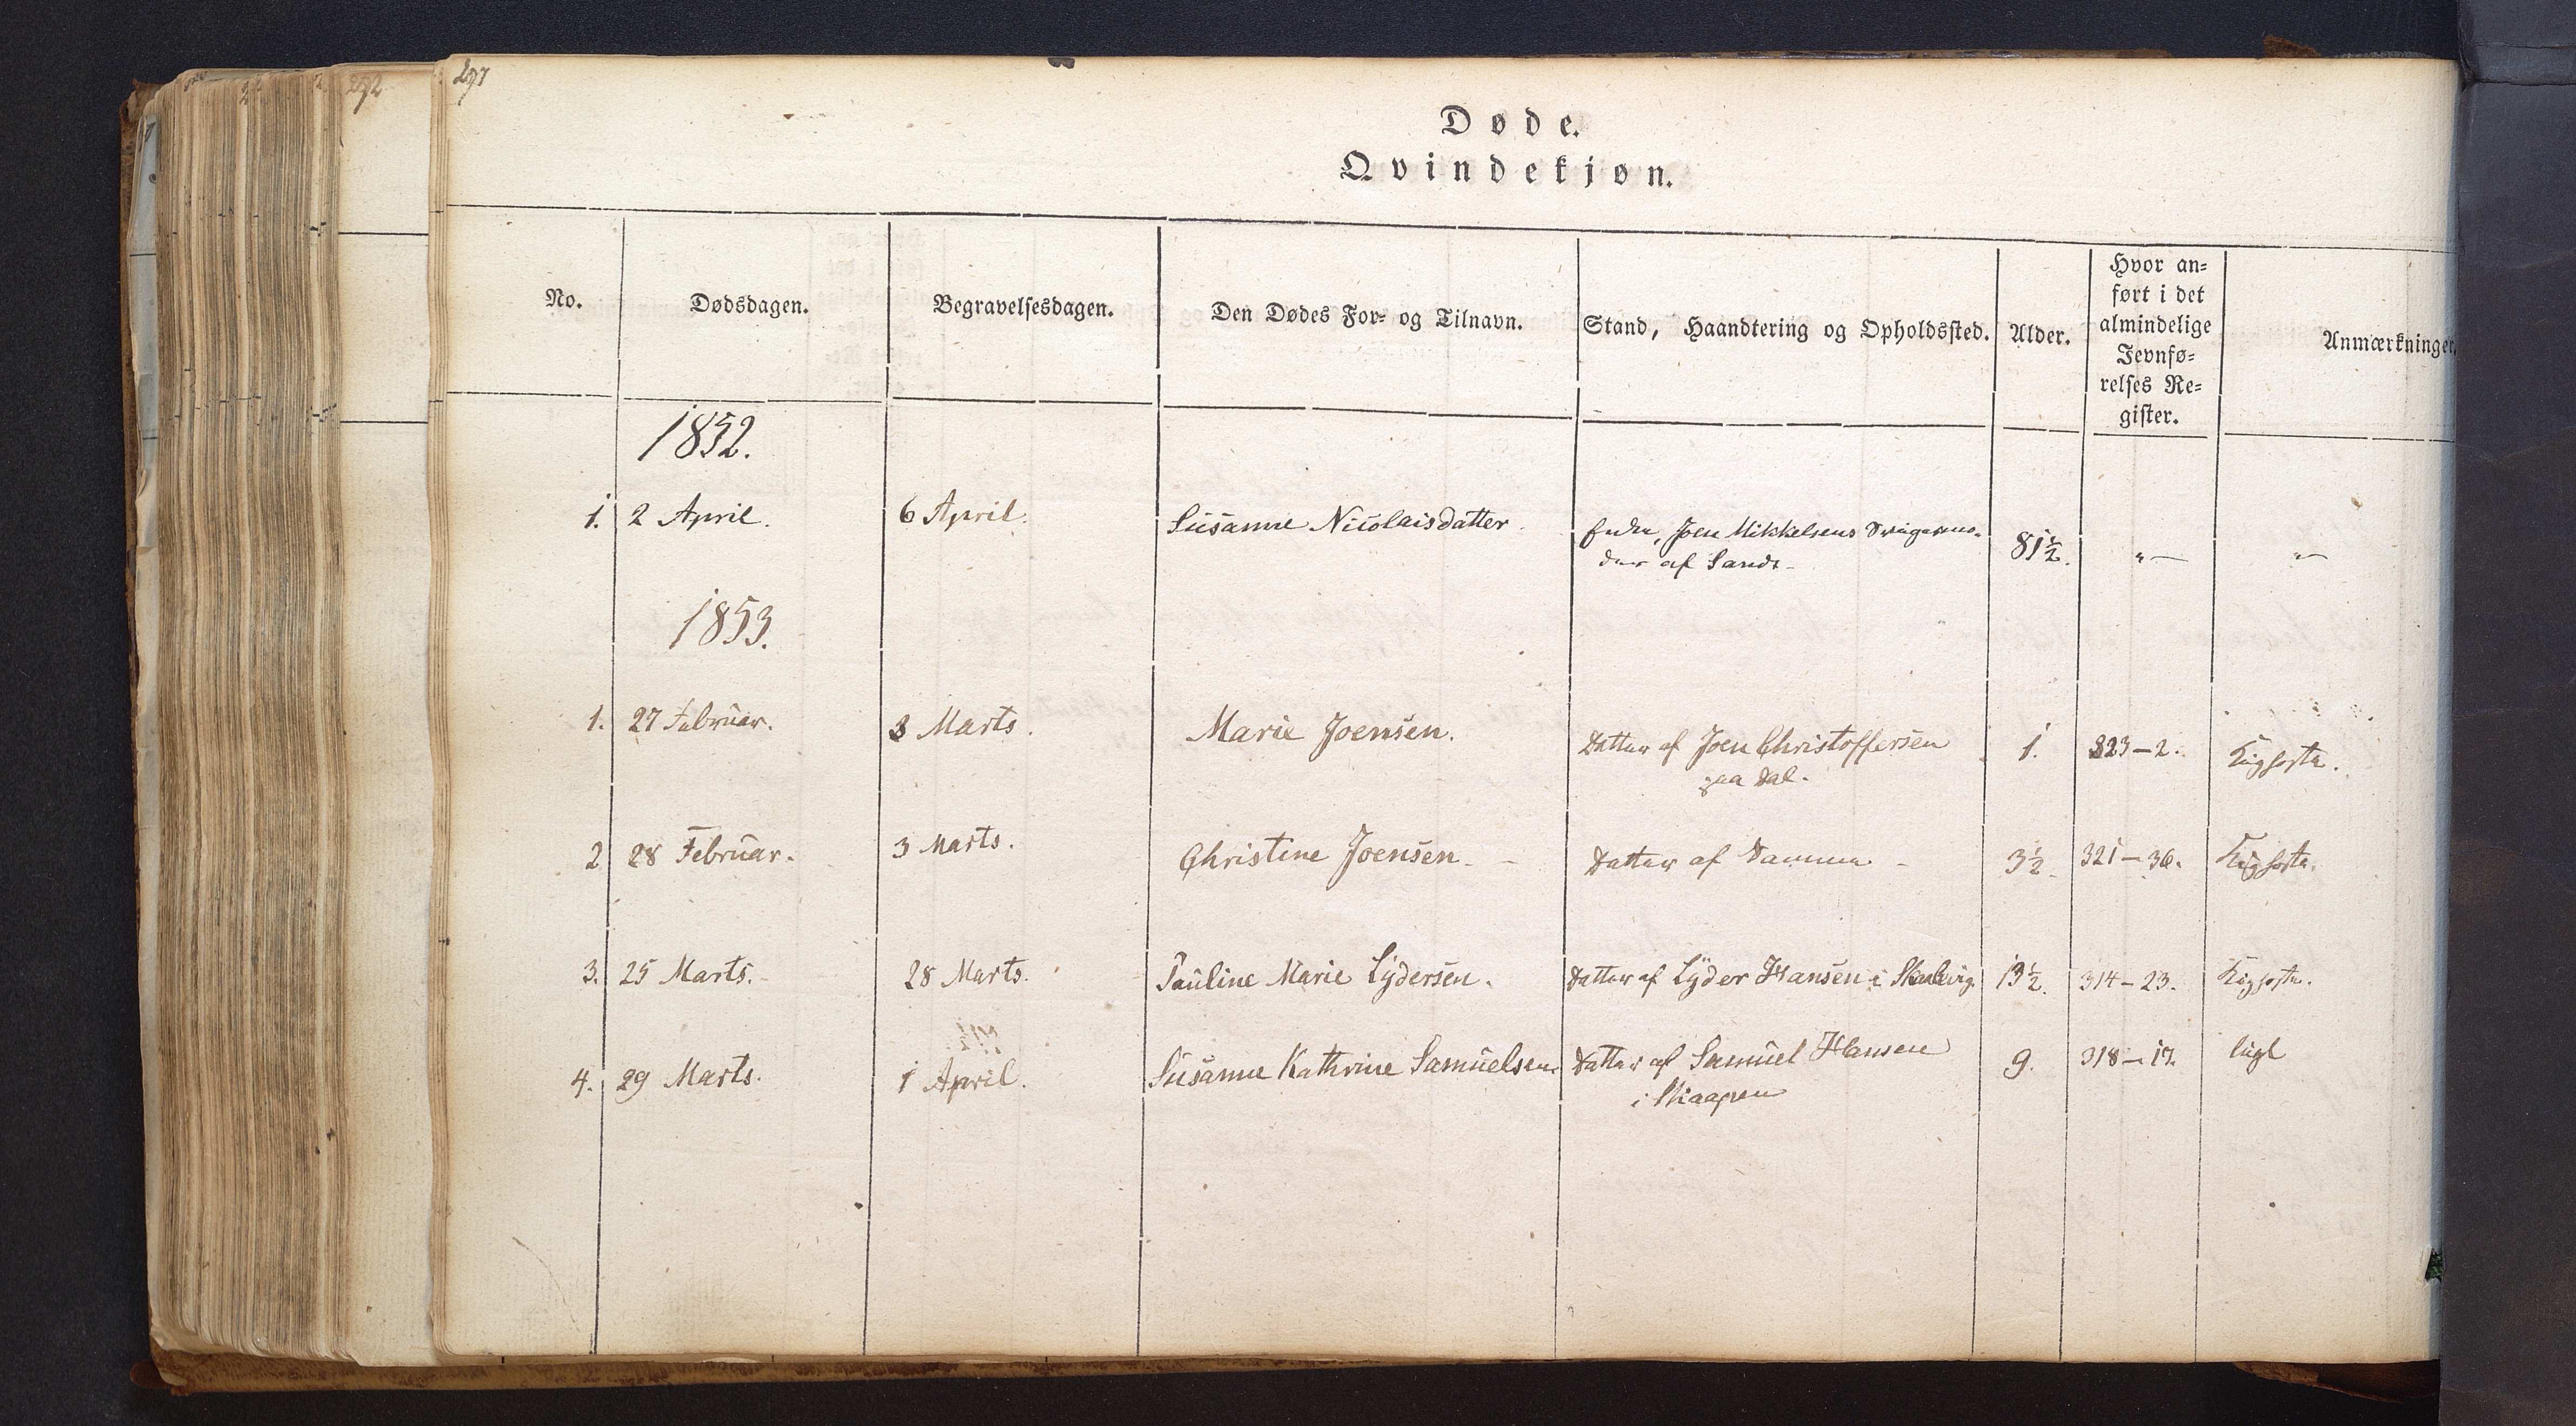 297
292
Døde.
Qvindekjøn.
No. Dødsdagen. Begravelsesdagen. Den Dødes For- og Tilnavn. Stand, Haandtering og Opholdssted. Alder. Hvor an-
ført i det
almindelige
Jevnfø-
relses Re-
gister. Anmærkninger.
1852.
1. 2 April. 6 April. Susanne Nicolaisdatter. Enke, Joen Mikkelsens Svigermo-
der af Sand. 81½. "— "—
1853.
1. 27 Februar. 3 Marts. Marie Joensen. Datter af Joen Christoffersen
paa Dal. 1. 323-2. Kighoste.
2 28 Februar. 3 Marts. Christine Joensen. - Datter af Samme - 3½. 321-36. Kighoste.
3. 25 Marts. 28 Marts. Pauline Marie Lydersen. Datter af Lyder Hansen i 13½. 314-23. Kighoste.
4. 29 Marts. 1 April. Susanne Kathrine Samuelsen Datter af Samuel Hansen
i Skaapen 9. 318-17.